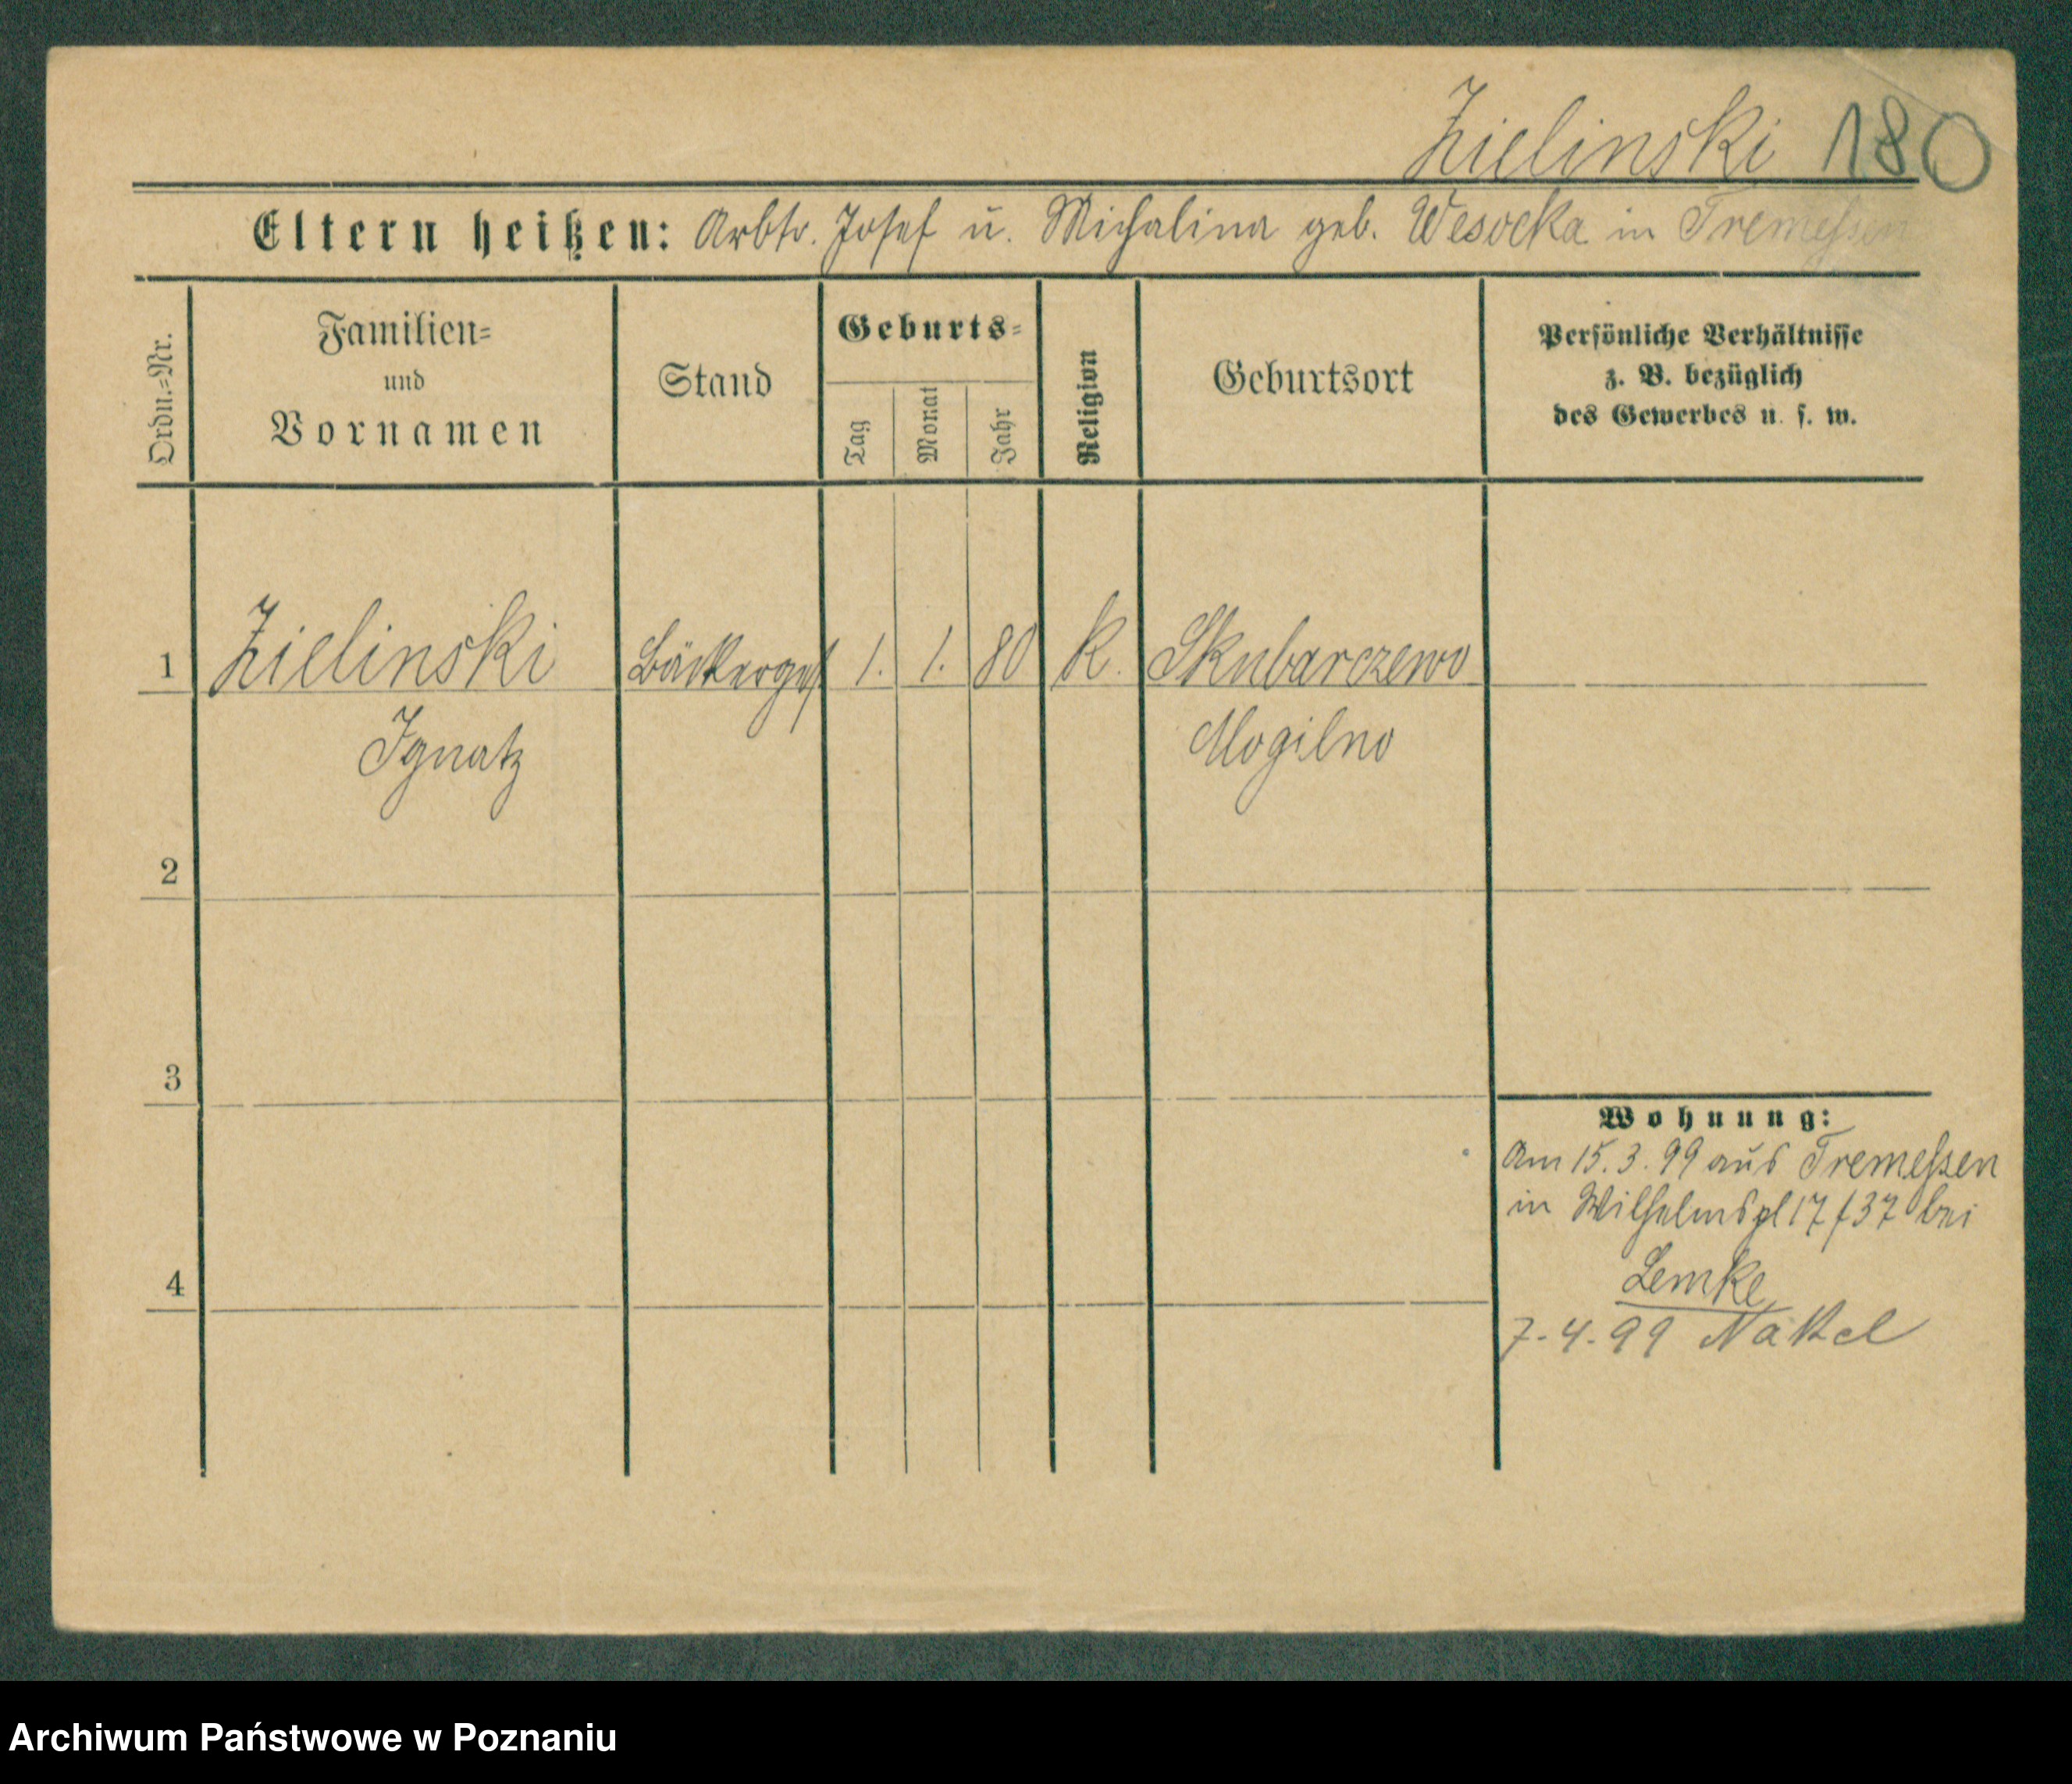 Zielinski 180
Eltern heißen: Arbtr. Josef u. Michalina geb. Wesocka in Tremeßen
Ordn.=Nr.
Familien=
und
Vornamen
Stand
Geburts=
Tag
Monat
Jahr
Religion
Geburtsort
Persönliche Verhältnisse
z. B. bezüglich
des Gewerbes u. s. w.
1 Zielinski Bäckerges 1. 1. 80 K. Skubarczewo
Ignatz Mogilno
2
3
Wohnung:
Am 15.3.99 aus Tremeßen
in Wilhelmspl 17/37 bei
Lemke
4
7.4.99 Nakel
Archiwum Państwowe w Poznaniu